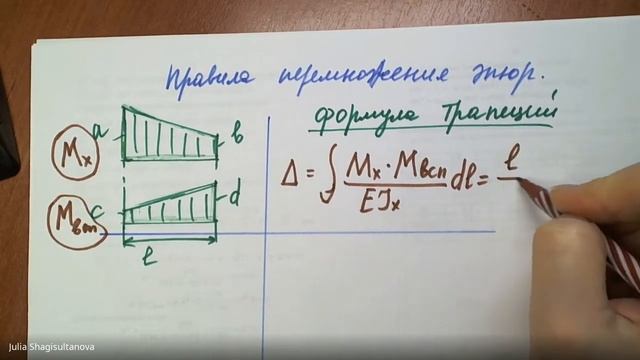 Правила перемножения эпюр.
Формула Трапеций
a
b
Mx
c
d
Mвсп
l
Δ = ∫ Mx · Mвсп / EJx dl = l
Julia Shagisultanova